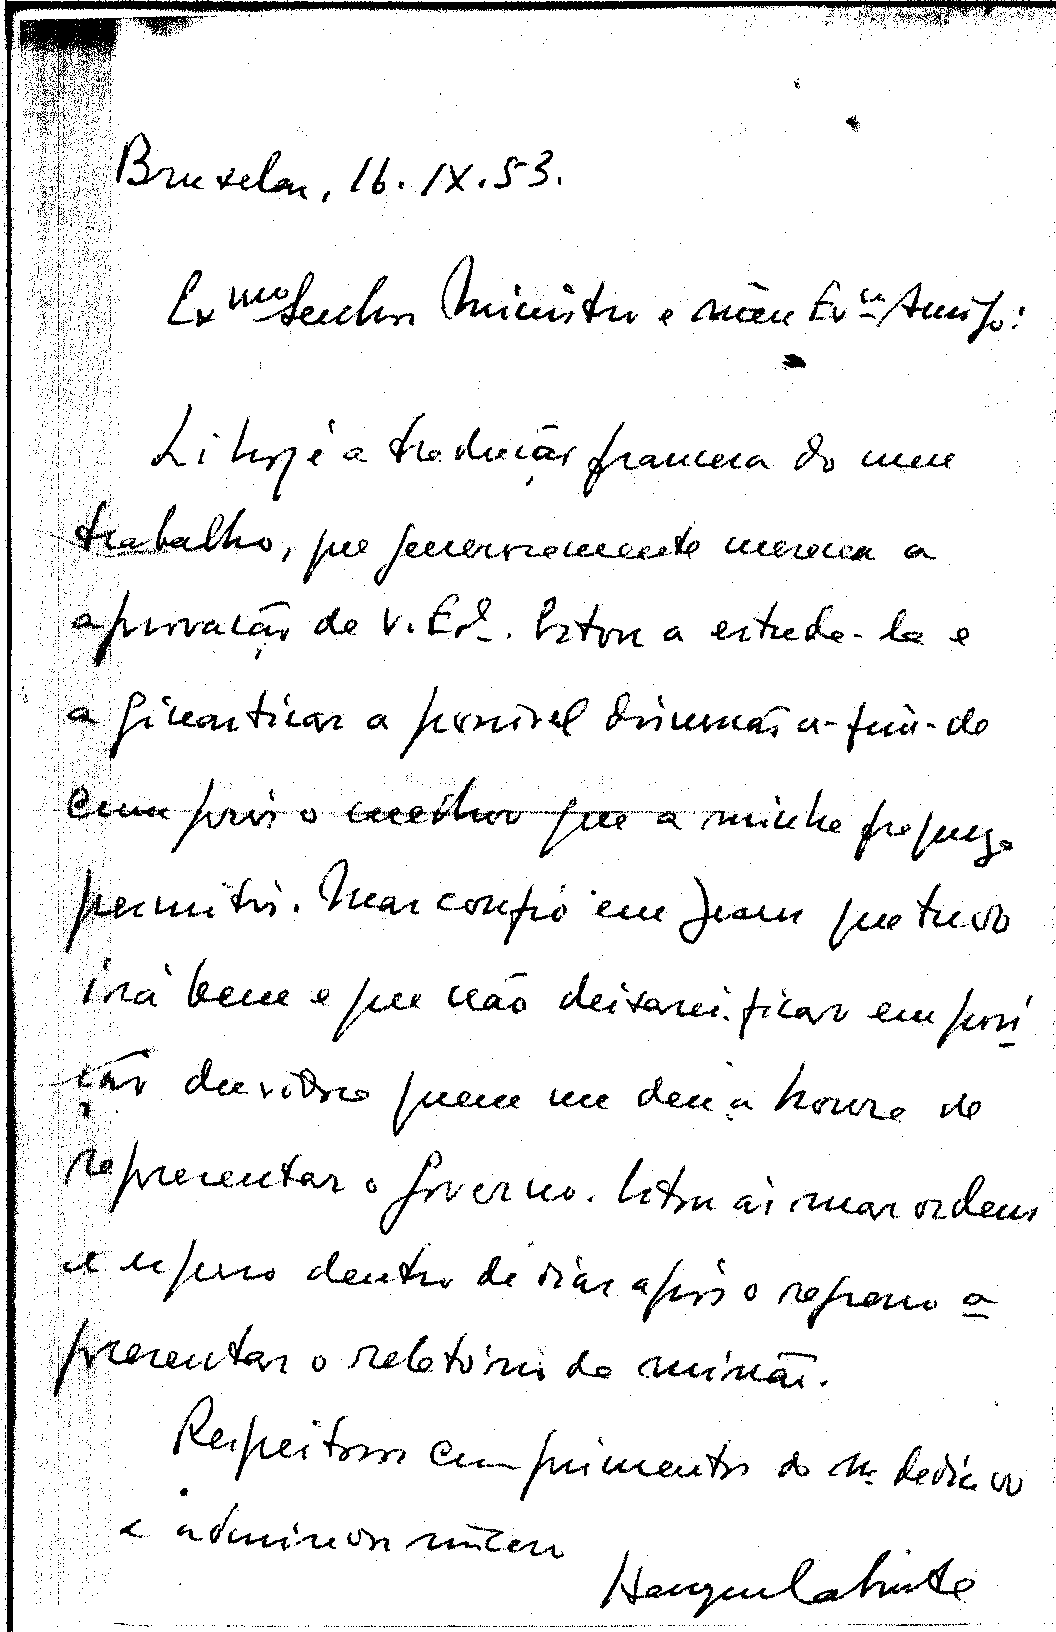 Bruxelas, 16.IX.53.
Exmo Senhor Ministro e meu Exmo Amigo:
Li hoje a tradução francesa do meu
trabalho, que generosamente mereceu a
aprovação de V. Exª. Estou a estudá-la e
a ginasticar a possível discussão a-fim-de
cumprir o melhor que a minha fraqueza
permitir. Mas confio em Jesus que tudo
irá bem e que não deixarei ficar em posi
ção duvidosa quem me deu a honra de
representar o Governo. Estou às suas ordens
e espero dentro de dias após o regresso a
presentar o relatório da missão.
Respeitosos cumprimentos do mº dedicado
e admirador sincero